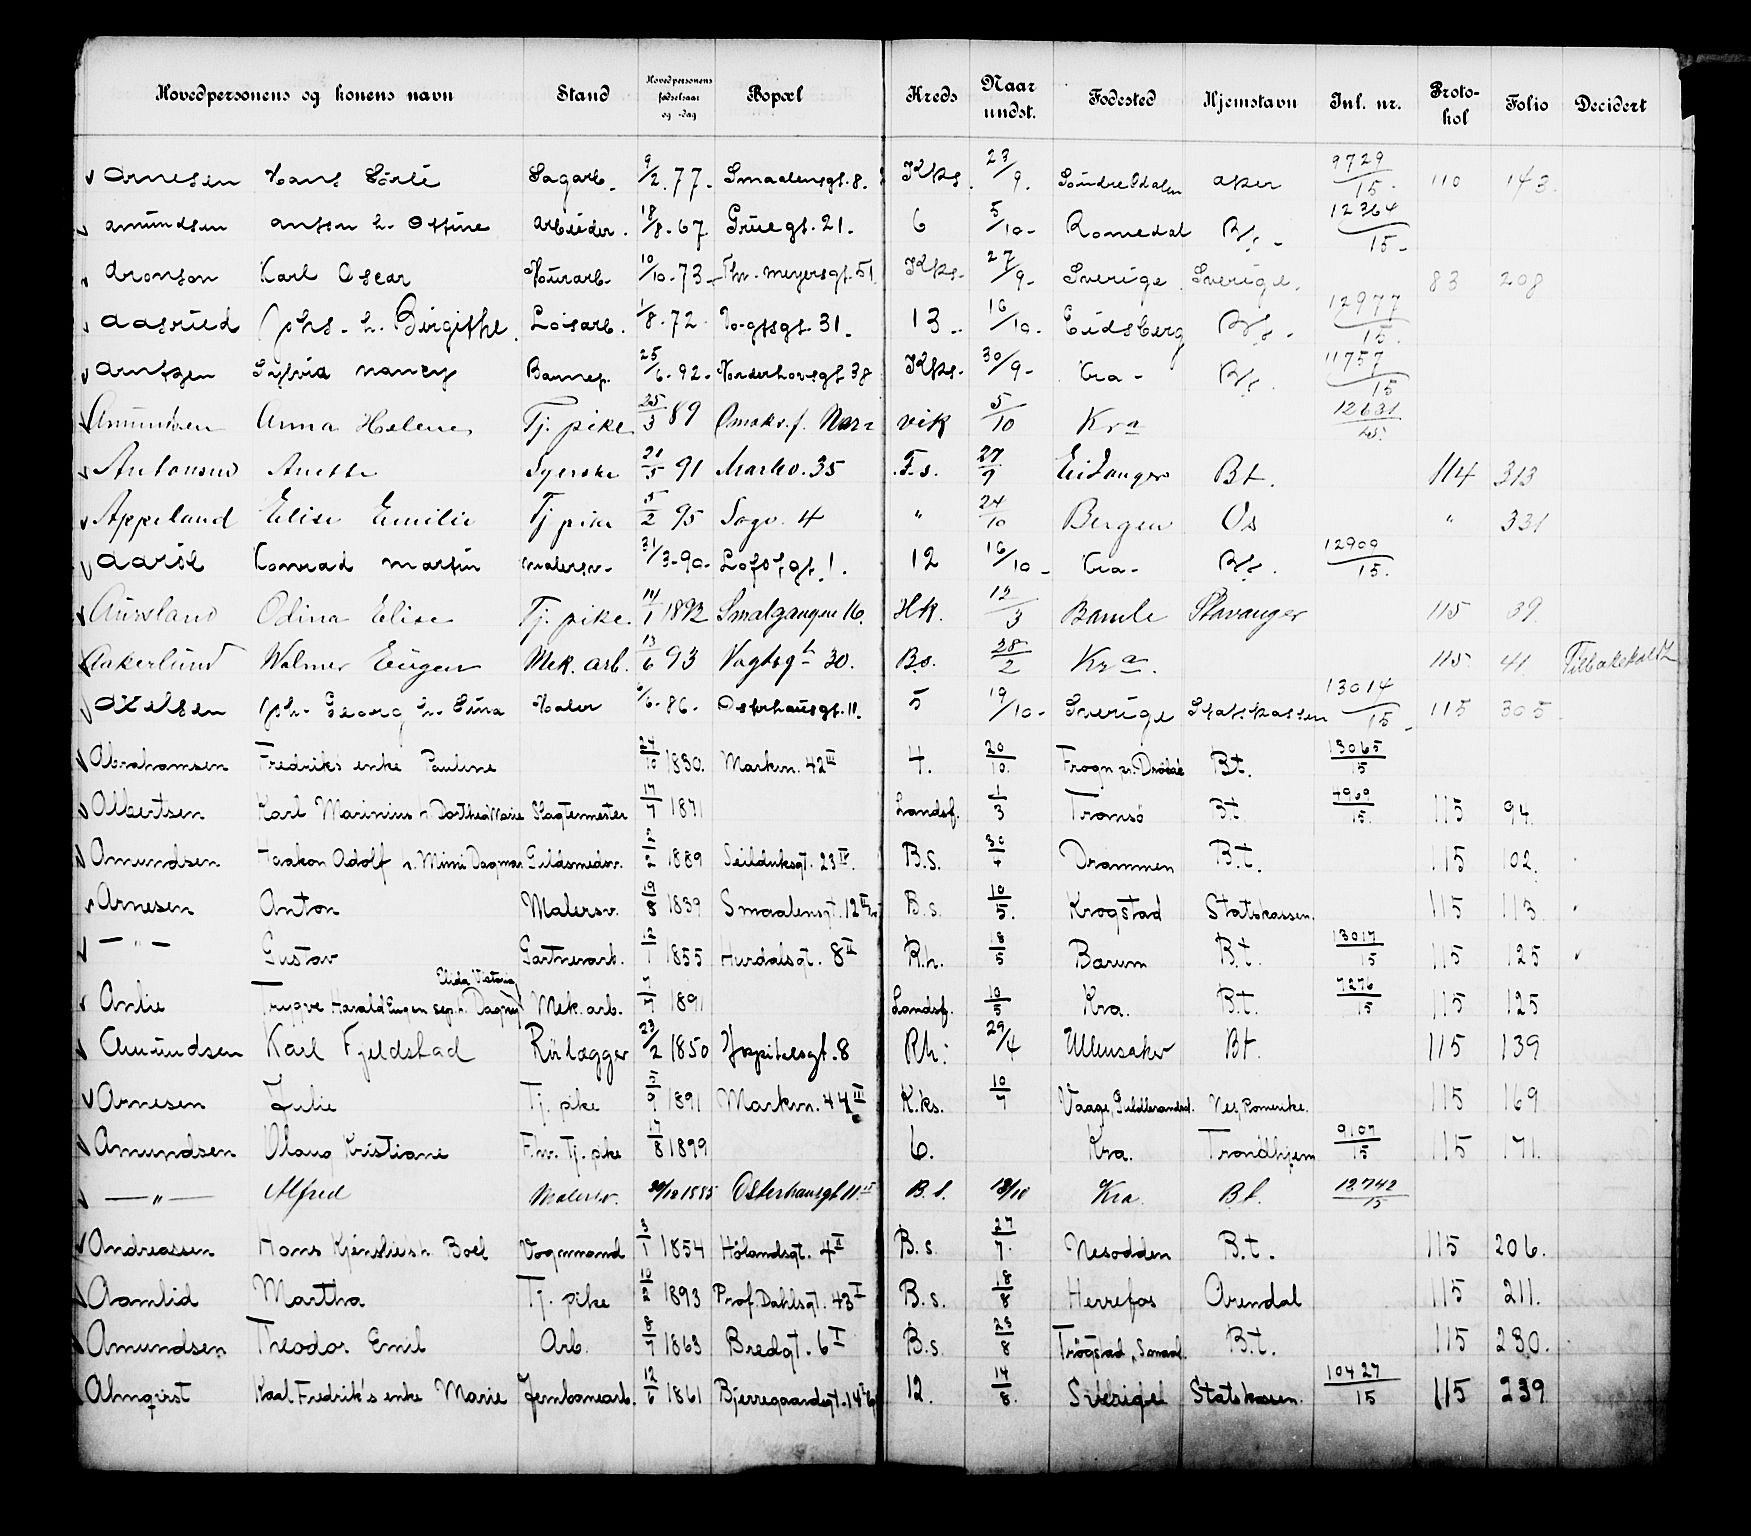 Hovedpersonens og konens navn Stand Hovedpersonens fødselsaar og -dag Bopæl Kreds Naar undst. Fødested Hjemstavn Inl. nr. Protokol Folio Decidert
Arnesen Hans Sørli Sagarb. 9/2.77. Smaalensgt. 8. Kks. 23/9. Søndre Odalen Aker 9729/15. 110 143.
Amundsen Anton h. Ottine Arbeider. 18/8.67. Gruegt. 21. 6 5/10- Romedal B.t. 12364/15-
Aronson Karl Oscar Murarb. 10/10.73- Thv. Meyersgt. 51 Kks. 27/9- Sverige Sverige. 83 208
Aasrud Johs. h. Birgithe Løsarb. 1/8.72. Vogtsgt. 31. 13- 16/10- Eidsberg B.t. 12977/15.
Arntzen Sylvia Nancy Barnep. 25/6.92- Nonderhovsgt 38 Kks. 30/9- Kra- B.t. 11757/15
Amundsen Anna Helene Tj. pike 25/3 89 Omskr. f. Narvik 5/10 Kra 12631/15
Antonsen Anette Syerske 21/5 91 Markv. 35 F.s. 27/9 Eidanger Bt. 114 313
Appeland Elise Emilie Tj pike 5/2 95 Sagv. 4 " 24/10 Bergen Os " 331
Aarsl Konrad Martin Malersv- 31/3-90- Lofotgt. 1. 12 16/10- Kra- B.t. 12909/15.
Aursland Odina Elise Tj. pike. 14/1 1892 Smalgangen 16. Hk. 12/3 Bamle Stavanger 115 39.
Aakerlund Walmer Eugen Mek. arb. 13/6 93 Vogtsgt 30. Bs. 28/2 Kra. 115 41 Tilbakekaldt
Axelsen Joh. Georg h. Elina Maler 6/6-86- Osterhausgt. 11. 5 19/10- Sverige Statskassen 13014/15- 115 305-
Abrahamsen Fredriks enke Pauline 24/10 1830. Markvn. 42 III 4. 20/10. Frogn pr. Drøbak Bt. 13065/15
Albertsen Karl Marinius h Dorthea Marie Slagtermester 17/7 1871 Landsf. 1/3 Tromsø Bt. 4969/15. 115 94.
Amundsen Haakon Adolf h. Mimi Dagmar Guldsmedsv. 2/2 1889 Seilduksgt. 23 IV. B.S. 30/4 Drammen B.t. 115 102.
Arnesen Anton Malersv. 19/8 1839 Smaalensgt. 12 B.s. 10/5. Krogstad Statskassen. 115 113
— " — Gustav Gartnerarb. 12/1 1855 Hurdalsgt. 8 II R.h. 18/5 Bærum B.t. 13017/15 115 125
Anlie Trygve Harald Eugen sep. h. Dagny Elida Victoria Mek. arb. 7/7 1891 Landsf. 10/5 Kra. B.t. 7276/15 115 125
Amundsen Karl Fjeldstad Rørlægger 23/2 1850 Hospitalsgt. 8 Rh. 29/4 Ullensaker Bt. 115 139
Arnesen Julie Tj. pike 5/9 1891 Markvn. 44 III K.ks. 10/7 Vaage, Guldbrandsd. Nes, Romerike. 115 169
Amundsen Olava Kristiane Fhv. Tj. pike 17/8 1899 6. Kra. Trondhjem 9107/15 115 171.
— " — Alfred Malersv. 30/10 1885 Osterhausgt. 11 B.s. 18/10 Kra. Bt. 12742/15
Andreassen Hans Kjerulf h. Boel Vognmand 3/1 1854 Hølandsgt. 4 II B.s. 27/7. Nesodden B.t. 115 206.
Aamlid Martha Tj. pike 10/2 1893 Prof. Dahlsgt. 43 I B.s. 18/8 Herrefos Arendal 115 211.
Amundsen Theodor Emil Arb. 8/7 1863 Bredgt. 6 I B.s. 25/8 Trøgstad, Smaal. B.t. 115 230.
Almqvist Karl Fredrik's enke Marie Jernbanearb. 12/6 1861 Bjerregaardsgt. 14 12. 14/8. Sverige Statskassen. 10427/15 115 239